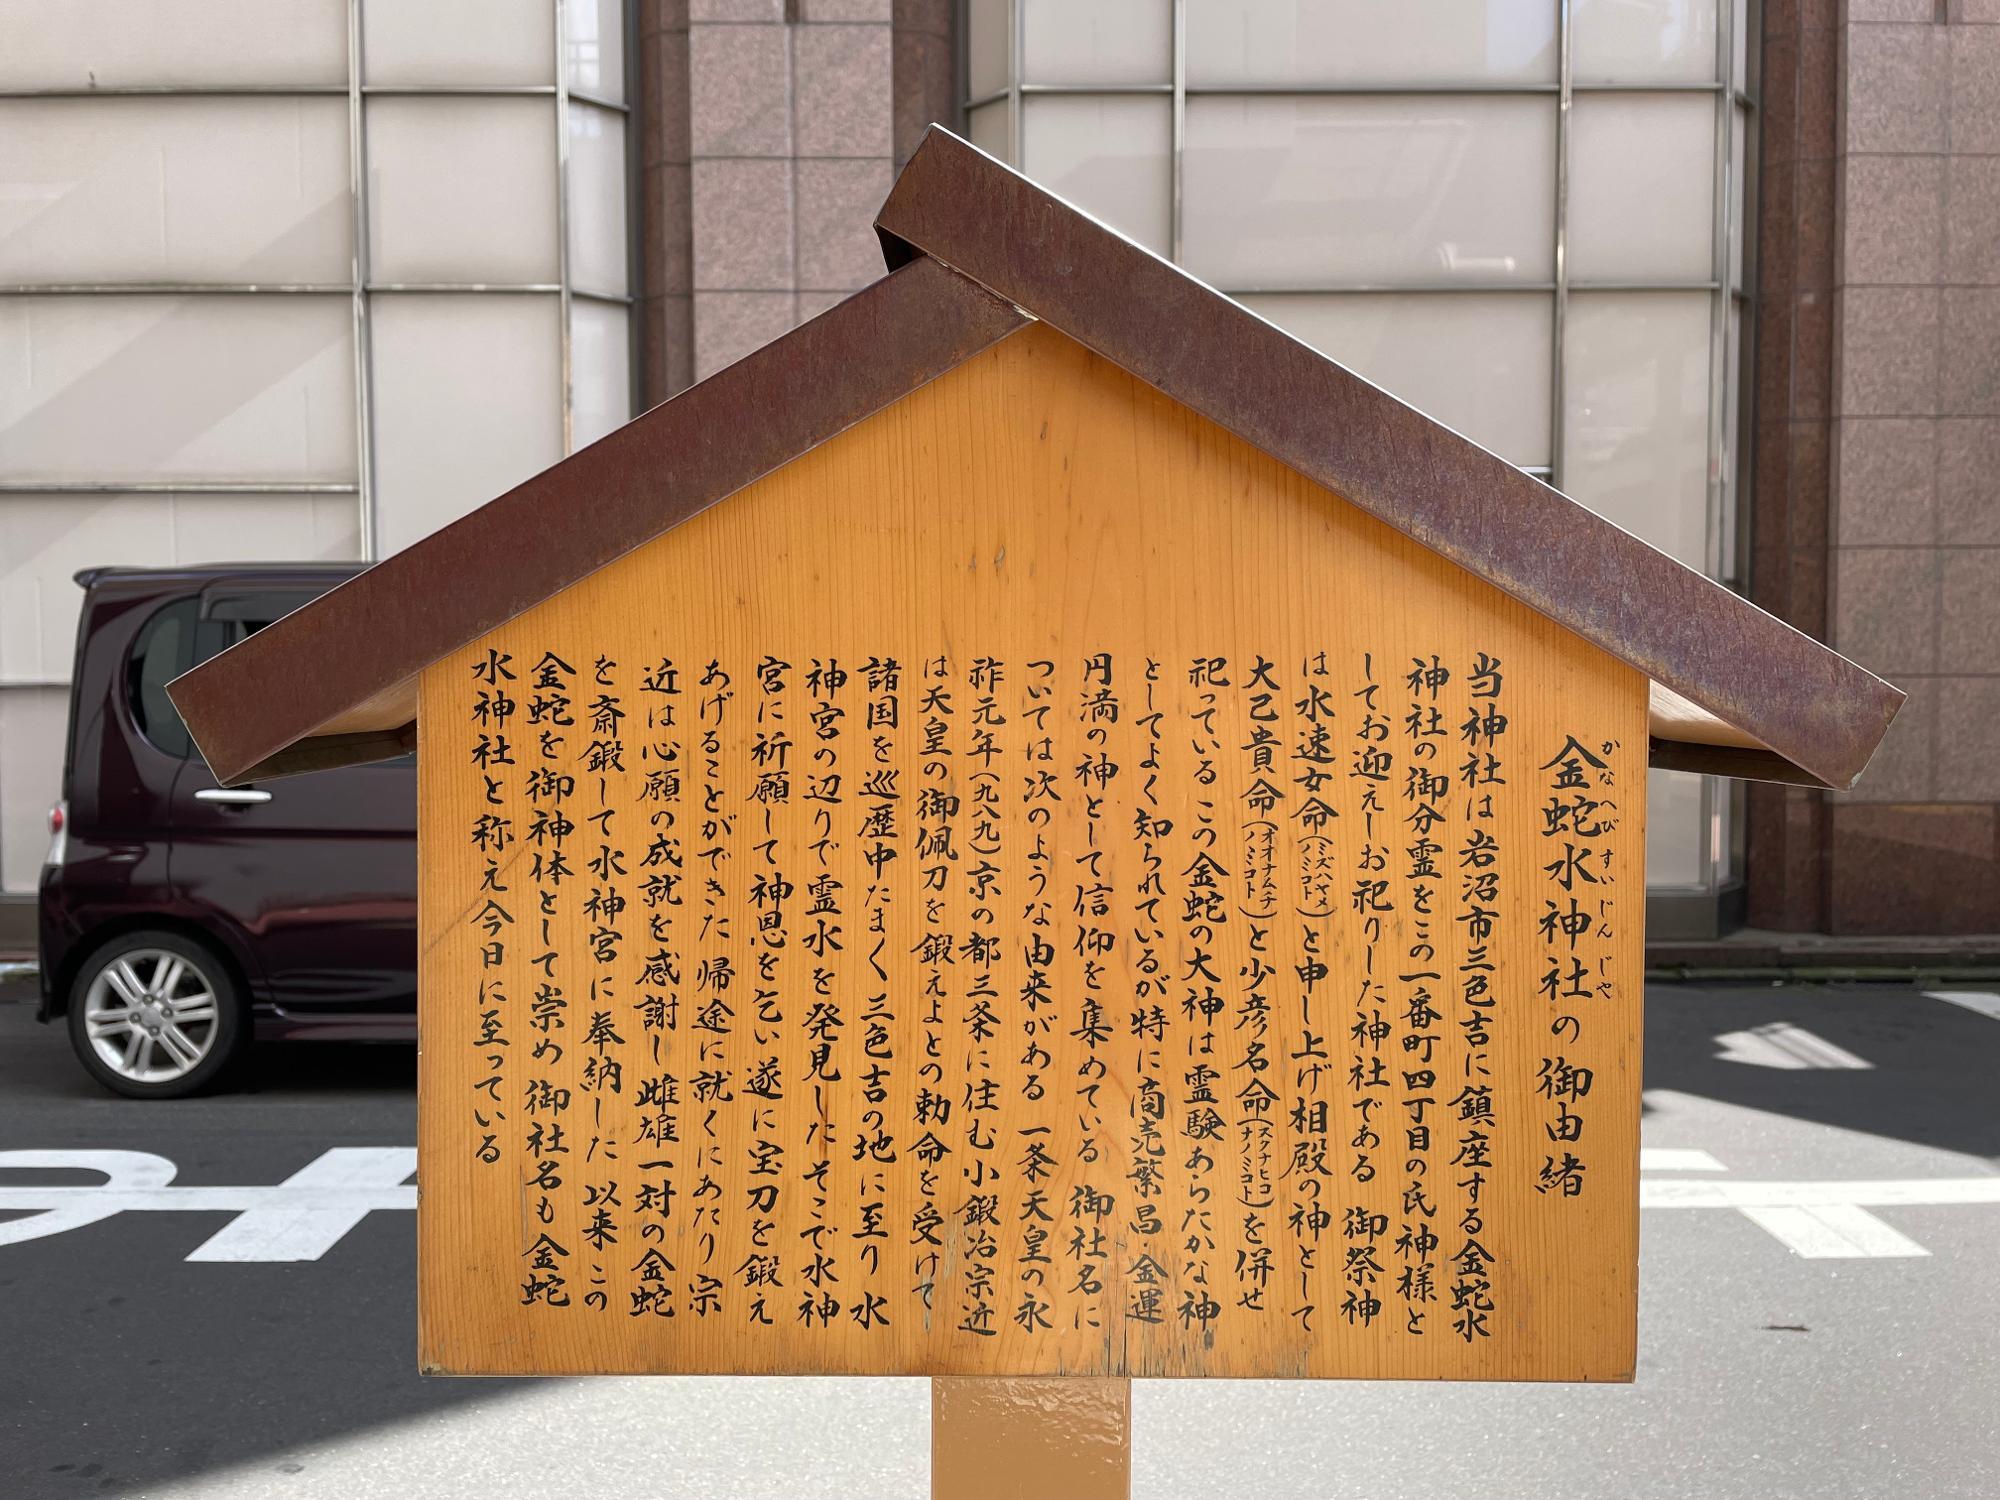 金蛇水神社の御由緒
かなへびすいじんじや
当神社は岩沼市三色吉に鎮座する金蛇水
神社の御分霊をこの一番町四丁目の氏神様と
してお迎えしお祀りした神社である 御祭神
は水速女命(ミズハヤメノミコト)と申し上げ相殿の神として
大己貴命(オオナムチノミコト)と少彦名命(スクナヒコナノミコト)を併せ
祀っている この金蛇の大神は霊験あらたかな神
としてよく知られているが特に商売繁昌·金運
円満の神として信仰を集めている 御社名に
ついては次のような由来がある 一条天皇の永
祚元年(九八九)京の都三条に住む小鍛冶宗近
は天皇の御佩刀を鍛えよとの勅命を受けて
諸国を巡歴中たま〱三色吉の地に至り 水
神宮の辺りで霊水を発見した そこで水神
宮に祈願して神恩を乞い遂に宝刀を鍛え
あげることができた 帰途に就くにあたり 宗
近は心願の成就を感謝し 雌雄一対の金蛇
を斎鍛して水神宮に奉納した 以来この
金蛇を御神体として崇め 御社名も金蛇
水神社と称え今日に至っている